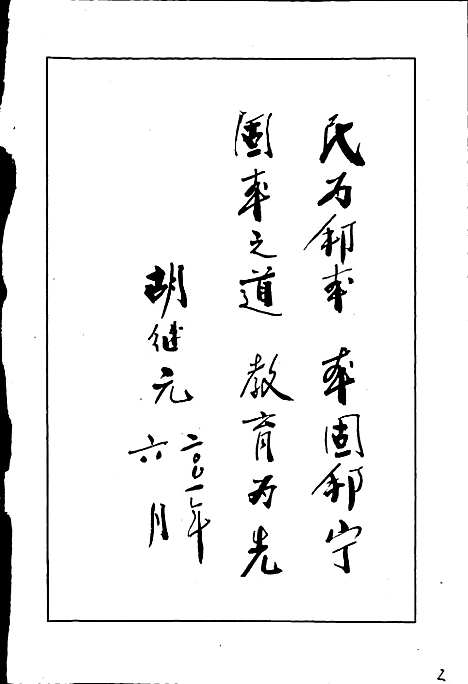 民为邦本 本固邦宁
固本之道 教育为先
胡继元
二〇〇一年
六月
2